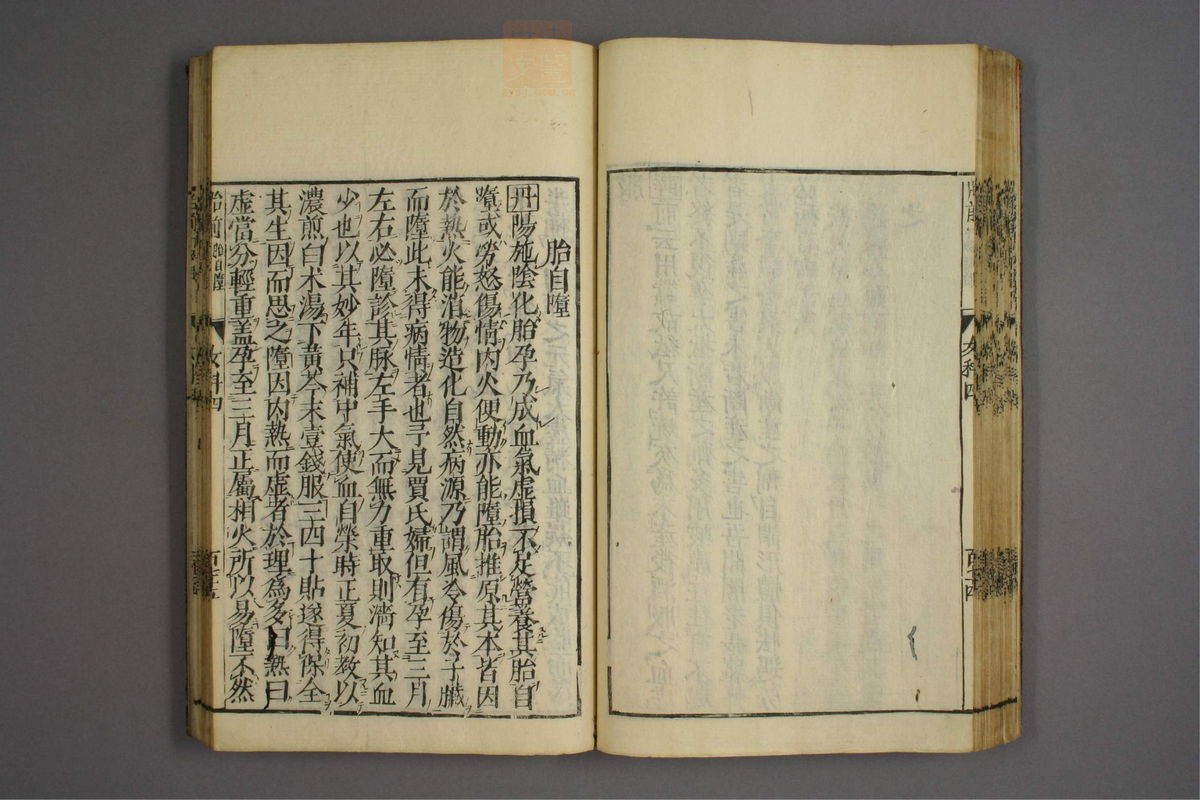 女科四
百十四
胎自墮
丹陽施陰化胎孕乃成血氣虛損不足營養其胎自
墮或勞怒傷情内火便動亦能墮胎推原其本皆因
於熱火能消物造化自然病源乃謂風冷傷於子臟
而墮此未得病情者也予見賈氏婦但有孕至三月
左右必墮診其脉左手大而無力重取則濇知其血
少也以其妙年只補中氣使血自榮時正夏初教以
濃煎白术湯下黃芩末壹錢服三四十貼遂得保全
其生因而思之墮因内熱而虛者於理爲多曰熱曰
虛當分輕重盖孕至三月正屬相火所以易墮不然
胎前 胎自墮
女科四
百十五